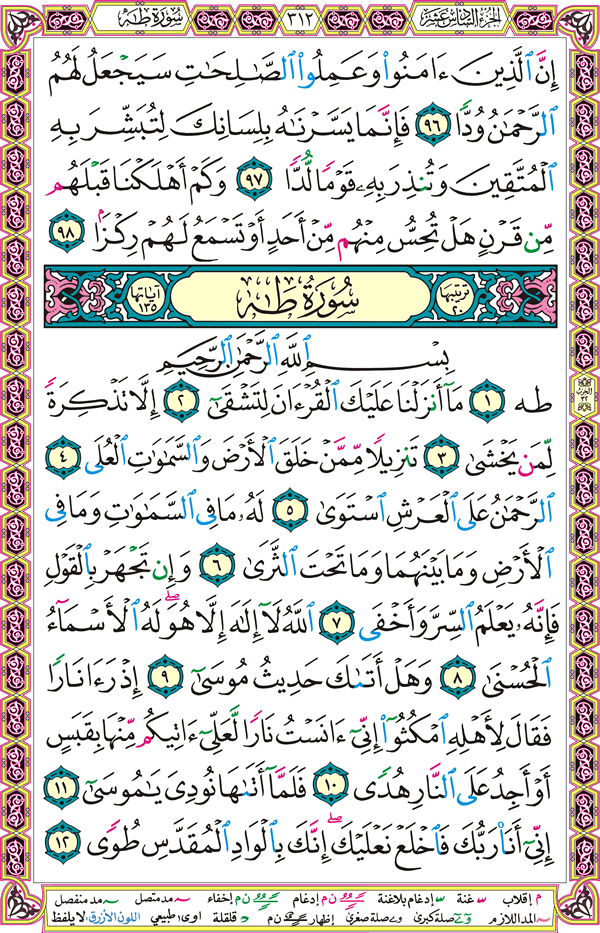 سُورَةُ طه
٣١٢
الجزء السادس عشر
إِنَّ ٱلَّذِينَ ءَامَنُوا۟ وَعَمِلُوا۟ ٱلصَّـٰلِحَـٰتِ سَيَجْعَلُ لَهُمُ
ٱلرَّحْمَـٰنُ وُدًّا ٩٦ فَإِنَّمَا يَسَّرْنَـٰهُ بِلِسَانِكَ لِتُبَشِّرَ بِهِ
ٱلْمُتَّقِينَ وَتُنذِرَ بِهِۦ قَوْمًا لُّدًّا ٩٧ وَكَمْ أَهْلَكْنَا قَبْلَهُم
مِّن قَرْنٍ هَلْ تُحِسُّ مِنْهُم مِّنْ أَحَدٍ أَوْ تَسْمَعُ لَهُمْ رِكْزًۢا ٩٨
ترتيبها ٢٠
سُورَةُ طه
آياتها ١٣٥
بِسْمِ ٱللَّهِ ٱلرَّحْمَـٰنِ ٱلرَّحِيمِ
طه ١ مَآ أَنزَلْنَا عَلَيْكَ ٱلْقُرْءَانَ لِتَشْقَىٰٓ ٢ إِلَّا تَذْكِرَةً
لِّمَن يَخْشَىٰ ٣ تَنزِيلًا مِّمَّنْ خَلَقَ ٱلْأَرْضَ وَٱلسَّمَـٰوَٰتِ ٱلْعُلَى ٤
ٱلرَّحْمَـٰنُ عَلَى ٱلْعَرْشِ ٱسْتَوَىٰ ٥ لَهُۥ مَا فِى ٱلسَّمَـٰوَٰتِ وَمَا فِى
ٱلْأَرْضِ وَمَا بَيْنَهُمَا وَمَا تَحْتَ ٱلثَّرَىٰ ٦ وَإِن تَجْهَرْ بِٱلْقَوْلِ
فَإِنَّهُۥ يَعْلَمُ ٱلسِّرَّ وَأَخْفَى ٧ ٱللَّهُ لَآ إِلَـٰهَ إِلَّا هُوَ ۖ لَهُ ٱلْأَسْمَآءُ
ٱلْحُسْنَىٰ ٨ وَهَلْ أَتَىٰكَ حَدِيثُ مُوسَىٰٓ ٩ إِذْ رَءَا نَارًا
فَقَالَ لِأَهْلِهِ ٱمْكُثُوٓا۟ إِنِّىٓ ءَانَسْتُ نَارًا لَّعَلِّىٓ ءَاتِيكُم مِّنْهَا بِقَبَسٍ
أَوْ أَجِدُ عَلَى ٱلنَّارِ هُدًى ١٠ فَلَمَّآ أَتَىٰهَا نُودِىَ يَـٰمُوسَىٰٓ ١١
إِنِّىٓ أَنَا۠ رَبُّكَ فَٱخْلَعْ نَعْلَيْكَ ۖ إِنَّكَ بِٱلْوَادِ ٱلْمُقَدَّسِ طُوًى ١٢
م إقلاب س غنة س إدغام بلاغنة ن م إدغام ن م إخفاء مد متصل مد منفصل
المد اللازم صلة كبرى صلة صغرى إظهار ن م قلقلة اوى؛ طبيعي اللون الأزرق: لا يلفظ